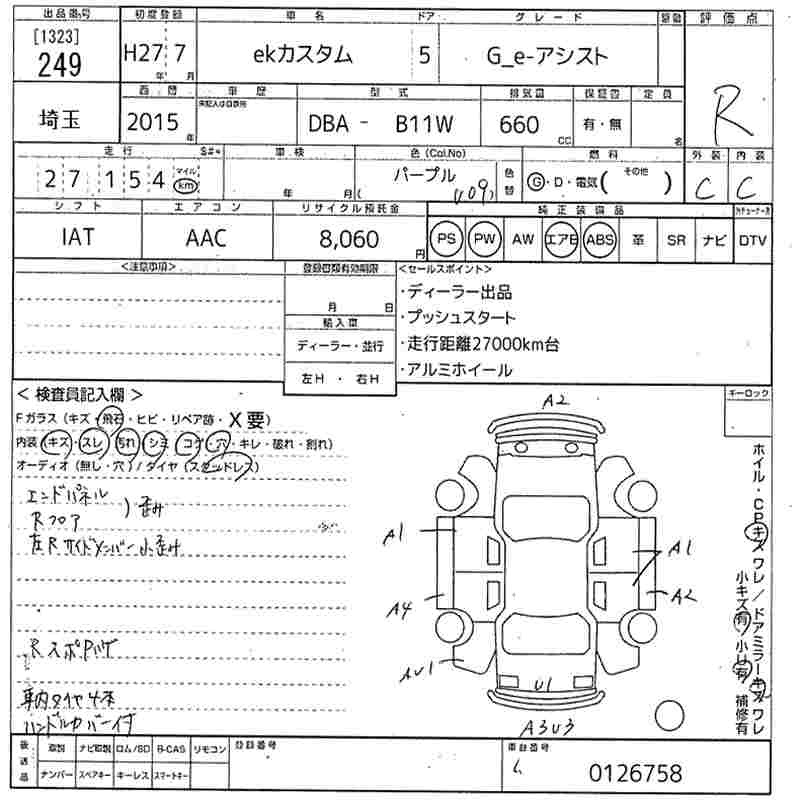 出品番号 初度登録 車名 ドア グレード 駆動 評価点
[1323]
249 H27 年 7 月 ekカスタム 5 G_e-アシスト
R
西暦 車歴 型式 排気量 保証書 定員
未記入は自家用
埼玉 2015 年 DBA - B11W 660 CC 有・無 名
走行 S#* 車検 色 (Col.No) 燃料 外装 内装
27,154 マイル km 年 月 パープル (J09) 色替 G・D・電気( その他 ) C C
シフト エアコン リサイクル預託金 純正装備品
IAT AAC 8,060 円 PS PW AW エアB ABS 革 SR ナビ DTV
<注意事項> 登録書類有効期限 <セールスポイント>
月 日
・ディーラー出品
輸入車
・プッシュスタート
ディーラー・並行
・走行距離27000km台
左H ・ 右H
・アルミホイール
< 検査員記入欄 > キーロック
Fガラス (キズ・飛石・ヒビ・リペア跡・X要)
内装 (キズ・スレ・汚れ・シミ・コゲ・穴・キレ・破れ・割れ)
オーディオ (無し・穴) / タイヤ (スタッドレス)
エンドパネル
Rフロア ) 歪み
左Rサイドメンバー小歪み
Rスポ Pハゲ
車内タイヤ4本
ハンドルカバー付
A2
A1 A1
A4 A2
AU1 U1
A3U3
ホイル・CPキズワレ/ドアミラーキズワレ
小キズ有 小U有 補修有
後送品 取説 ナビ取説 ロム/SD B-CAS リモコン 登録番号 車台番号
ナンバー スペアキー キーレス スマートキー 0126758